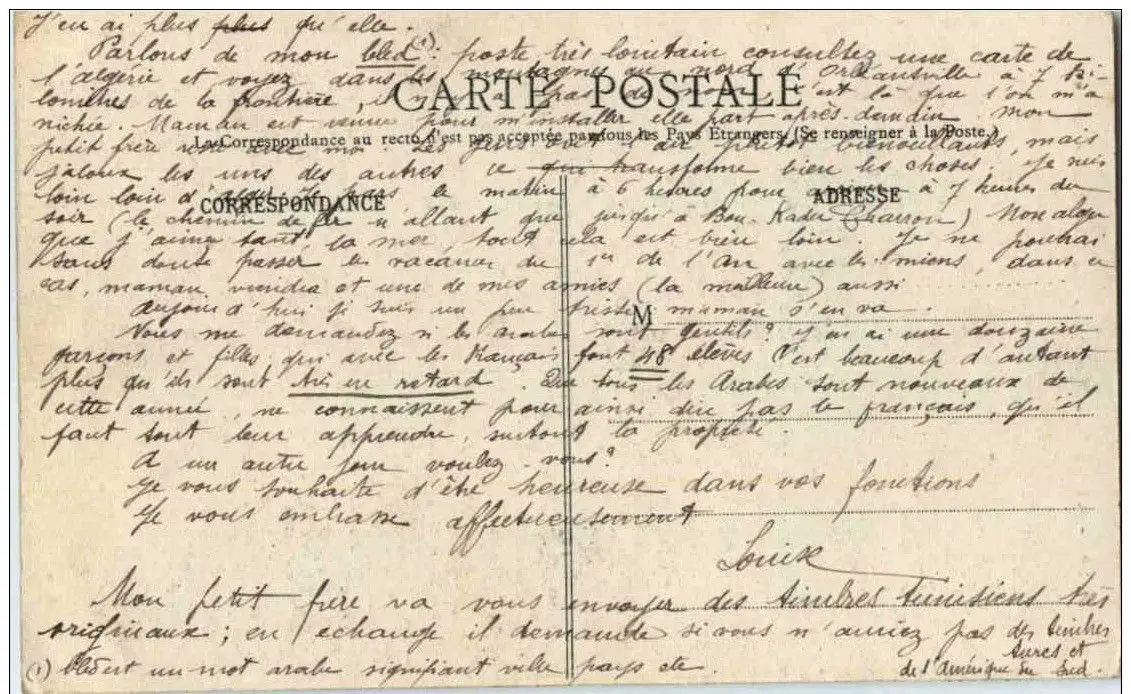 J'en ai plus plus qu'elle.
Parlons de mon bled (1): poste très lointain consultez une carte de
l'algérie et voyez dans les montagnes au nord d'Orléansville à 7 Ki-
CARTE POSTALE
lomètres de la frontière, il n'y a pas de c'est là que l'on m'a
nichée. Maman est venue pour m'installer elle part après-demain, mon
La Correspondance au recto n'est pas acceptée par tous les Pays Etrangers. (Se renseigner à la Poste.)
petit frère reste avec moi Les gens ont l'air plutôt bienveillants, mais
jaloux les uns des autres ce qui transforme bien les choses. Je suis
loin loin d'alger. Je pars le matin à 6 heures pour arriver à 7 heures du
CORRESPONDANCE
ADRESSE
soir (le chemin de fer n'allant que jusqu'à Bou-Kader Charron) Mon alger
que j'aime tant, la mer, tout cela est bien loin. Je ne pourrai
sans doute passer les vacances du 1er de l'An avec les miens, dans ce
cas, maman viendra et une de mes amies (la meilleure) aussi
aujourd'hui je suis un peu triste maman s'en va.
M
Vous me demandez si les arabes sont gentils? J'en ai une douzaine
garçons et filles qui avec les Français font 48 élèves C'est beaucoup d'autant
plus qu'ils sont très en retard. Que tous les Arabes sont nouveaux de
cette année, ne connaissent pour ainsi dire pas le français, qu'il
faut tout leur apprendre, surtout la propreté.
A un autre jour voulez-vous?
Je vous souhaite d'être heureuse dans vos fonctions
Je vous embrasse affectueusement
Louise
Mon petit frère va vous envoyer des timbres tunisiens très
originaux; en échange il demande si vous n'auriez pas des timbres
turcs et
de l'Amérique du Sud.
(1) bled est un mot arabe signifiant ville pays etc.